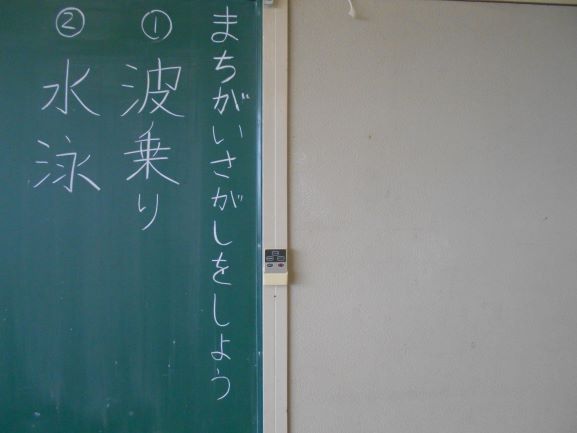 まちがいさがしをしよう
① 波乗り
② 水泳